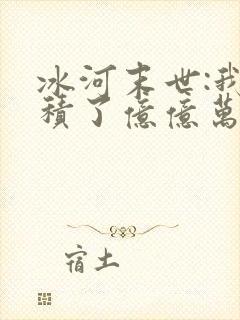 冰河末世:我
積了億億萬
宿土